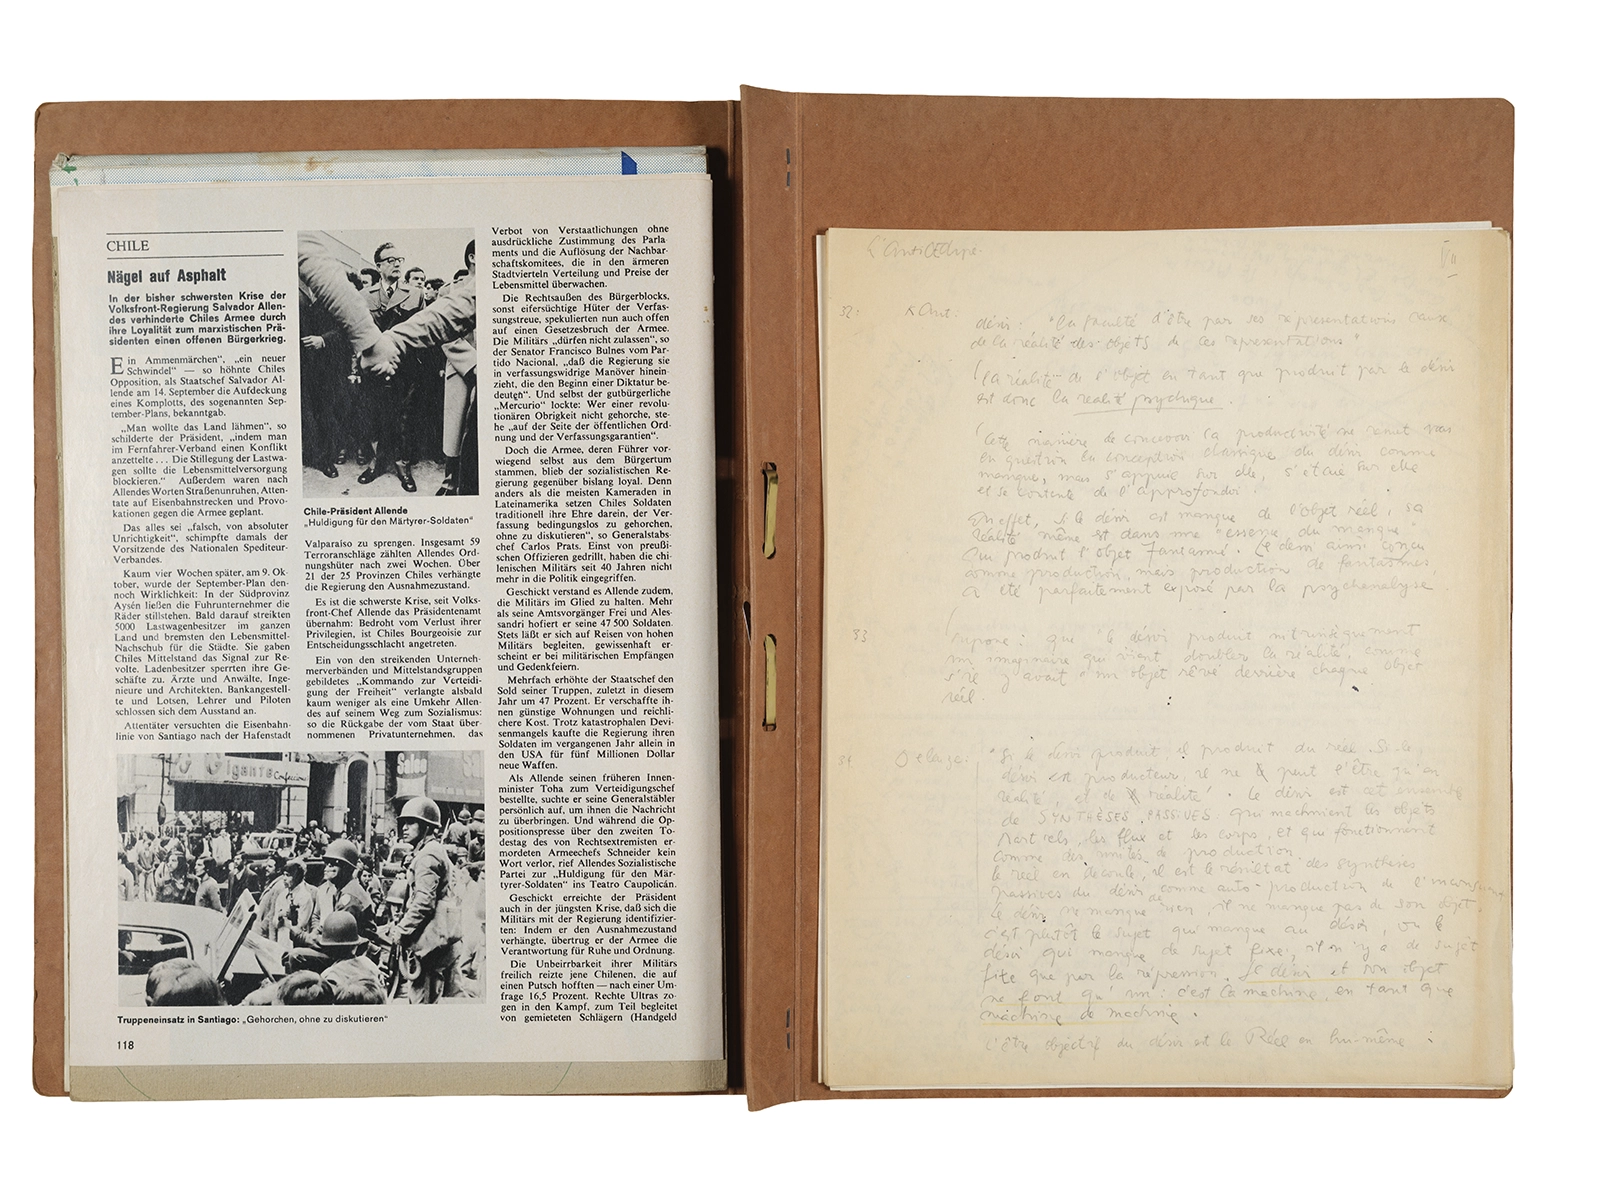 CHILE
Nägel auf Asphalt
In der bisher schwersten Krise der
Volksfront-Regierung Salvador Allen-
des verhinderte Chiles Armee durch
ihre Loyalität zum marxistischen Prä-
sidenten einen offenen Bürgerkrieg.
Ein Ammenmärchen“, „ein neuer
Schwindel“ — so höhnte Chiles
Opposition, als Staatschef Salvador Al-
lende am 14. September die Aufdeckung
eines Komplotts, des sogenannten Sep-
tember-Plans, bekanntgab.
„Man wollte das Land lähmen“, so
schilderte der Präsident, „indem man
im Fernfahrer-Verband einen Konflikt
anzettelte . . . Die Stillegung der Lastwa-
gen sollte die Lebensmittelversorgung
blockieren.“ Außerdem waren nach
Allendes Worten Straßenunruhen, Atten-
tate auf Eisenbahnstrecken und Provo-
kationen gegen die Armee geplant.
Das alles sei „falsch, von absoluter
Unrichtigkeit“, schimpfte damals der
Vorsitzende des Nationalen Spediteur-
Verbandes.
Kaum vier Wochen später, am 9. Ok-
tober, wurde der September-Plan den-
noch Wirklichkeit: In der Südprovinz
Aysén ließen die Fuhrunternehmer die
Räder stillstehen. Bald darauf streikten
5000 Lastwagenbesitzer im ganzen
Land und bremsten den Lebensmittel-
Nachschub für die Städte. Sie gaben
Chiles Mittelstand das Signal zur Re-
volte. Ladenbesitzer sperrten ihre Ge-
schäfte zu. Ärzte und Anwälte, Inge-
nieure und Architekten, Bankangestell-
te und Lotsen, Lehrer und Piloten
schlossen sich dem Ausstand an.
Attentäter versuchten die Eisenbahn-
linie von Santiago nach der Hafenstadt
Chile-Präsident Allende
„Huldigung für den Märtyrer-Soldaten“
Valparaiso zu sprengen. Insgesamt 59
Terroranschläge zählten Allendes Ord-
nungshüter nach zwei Wochen. Über
21 der 25 Provinzen Chiles verhängte
die Regierung den Ausnahmezustand.
Es ist die schwerste Krise, seit Volks-
front-Chef Allende das Präsidentenamt
übernahm: Bedroht vom Verlust ihrer
Privilegien, ist Chiles Bourgeoisie zur
Entscheidungsschlacht angetreten.
Ein von den streikenden Unterneh-
merverbänden und Mittelstandsgruppen
gebildetes „Kommando zur Verteidi-
gung der Freiheit“ verlangte alsbald
kaum weniger als eine Umkehr Allen-
des auf seinem Weg zum Sozialismus:
so die Rückgabe der vom Staat über-
nommenen Privatunternehmen, das
Verbot von Verstaatlichungen ohne
ausdrückliche Zustimmung des Parla-
ments und die Auflösung der Nachbar-
schaftskomitees, die in den ärmeren
Stadtvierteln Verteilung und Preise der
Lebensmittel überwachen.
Die Rechtsaußen des Bürgerblocks,
sonst eifersüchtige Hüter der Verfas-
sungstreue, spekulierten nun auch offen
auf einen Gesetzesbruch der Armee.
Die Militärs „dürfen nicht zulassen“, so
der Senator Francisco Bulnes vom Par-
tido Nacional, „daß die Regierung sie
in verfassungswidrige Manöver hinein-
zieht, die den Beginn einer Diktatur be-
deuten“. Und selbst der gutbürgerliche
„Mercurio“ lockte: Wer einer revolu-
tionären Obrigkeit nicht gehorche, ste-
he „auf der Seite der öffentlichen Ord-
nung und der Verfassungsgarantien“.
Doch die Armee, deren Führer vor-
wiegend selbst aus dem Bürgertum
stammen, blieb der sozialistischen Re-
gierung gegenüber bislang loyal. Denn
anders als die meisten Kameraden in
Lateinamerika setzen Chiles Soldaten
traditionell ihre Ehre darein, der Ver-
fassung bedingungslos zu gehorchen,
ohne zu diskutieren“, so Generalstabs-
chef Carlos Prats. Einst von preußi-
schen Offizieren gedrillt, haben die chi-
lenischen Militärs seit 40 Jahren nicht
mehr in die Politik eingegriffen.
Geschickt verstand es Allende zudem,
die Militärs im Glied zu halten. Mehr
als seine Amtsvorgänger Frei und Ales-
sandri hofiert er seine 47 500 Soldaten.
Stets läßt er sich auf Reisen von hohen
Militärs begleiten, gewissenhaft er-
scheint er bei militärischen Empfängen
und Gedenkfeiern.
Mehrfach erhöhte der Staatschef den
Sold seiner Truppen, zuletzt in diesem
Jahr um 47 Prozent. Er verschaffte ih-
nen günstige Wohnungen und reichli-
chere Kost. Trotz katastrophalen Devi-
senmangels kaufte die Regierung ihren
Soldaten im vergangenen Jahr allein in
den USA für fünf Millionen Dollar
neue Waffen.
Als Allende seinen früheren Innen-
minister Toha zum Verteidigungschef
bestellte, suchte er seine Generalstäbler
persönlich auf, um ihnen die Nachricht
zu überbringen. Und während die Op-
positionspresse über den zweiten To-
destag des von Rechtsextremisten er-
mordeten Armeechefs Schneider kein
Wort verlor, rief Allendes Sozialistische
Partei zur „Huldigung für den Mär-
tyrer-Soldaten“ ins Teatro Caupolicán.
Geschickt erreichte der Präsident
auch in der jüngsten Krise, daß sich die
Militärs mit der Regierung identifizier-
ten: Indem er den Ausnahmezustand
verhängte, übertrug er der Armee die
Verantwortung für Ruhe und Ordnung.
Die Unbeirrbarkeit ihrer Militärs
freilich reizte jene Chilenen, die auf
einen Putsch hofften — nach einer Um-
frage 16,5 Prozent. Rechte Ultras zo-
gen in den Kampf, zum Teil begleitet
von gemieteten Schlägern (Handgeld
Gigante Confecciones
Truppeneinsatz in Santiago: „Gehorchen, ohne zu diskutieren“
118
L'AntiŒdipe
VII
32: Kant:
désir: "la faculté d'être par ses representations cause
de la réalité des objets de ces representations"
la réalité de l'objet en tant que produit par le désir
est donc la realité psychique.
Cette manière de concevoir la productivité ne remet pas
en question la conception classique du désir comme
manque, mais s'appuie sur elle, s'étaie sur elle
et se contente de l'approfondir.
En effet, si le désir est manque de l'objet réel, sa
réalité même est dans une "essence du manque"
qui produit l'objet fantasmé. Le désir ainsi conçu
comme production, mais production de fantasmes,
a été parfaitement exposé par la psychanalyse.
33
supose: que le désir produit intrinsèquement
un imaginaire qui vient doubler la réalité, comme
s'il y avait "un objet rêvé derrière chaque objet
réel.
34 Deleuze:
"Si le désir produit, il produit du réel. Si le
désir est producteur, il ne peut l'être qu'en
réalité, et de réalité". Le désir est cet ensemble
de SYNTHÈSES PASSIVES qui machinent les objets
partiels, les flux et les corps, et qui fonctionnent
comme des unités de production.
le réel en découle, il est le résultat des synthèses
passives du désir comme auto-production de l'inconscient
Le désir ne manque de rien, il ne manque pas de son objet.
c'est plutôt le sujet qui manque au désir, ou le
désir qui manque de sujet fixe; il n'y a de sujet
fixe que par la répression. Le désir et son objet
ne font qu'un: c'est la machine, en tant que
machine de machine.
L'être objectif du désir est le Réel en lui-même: